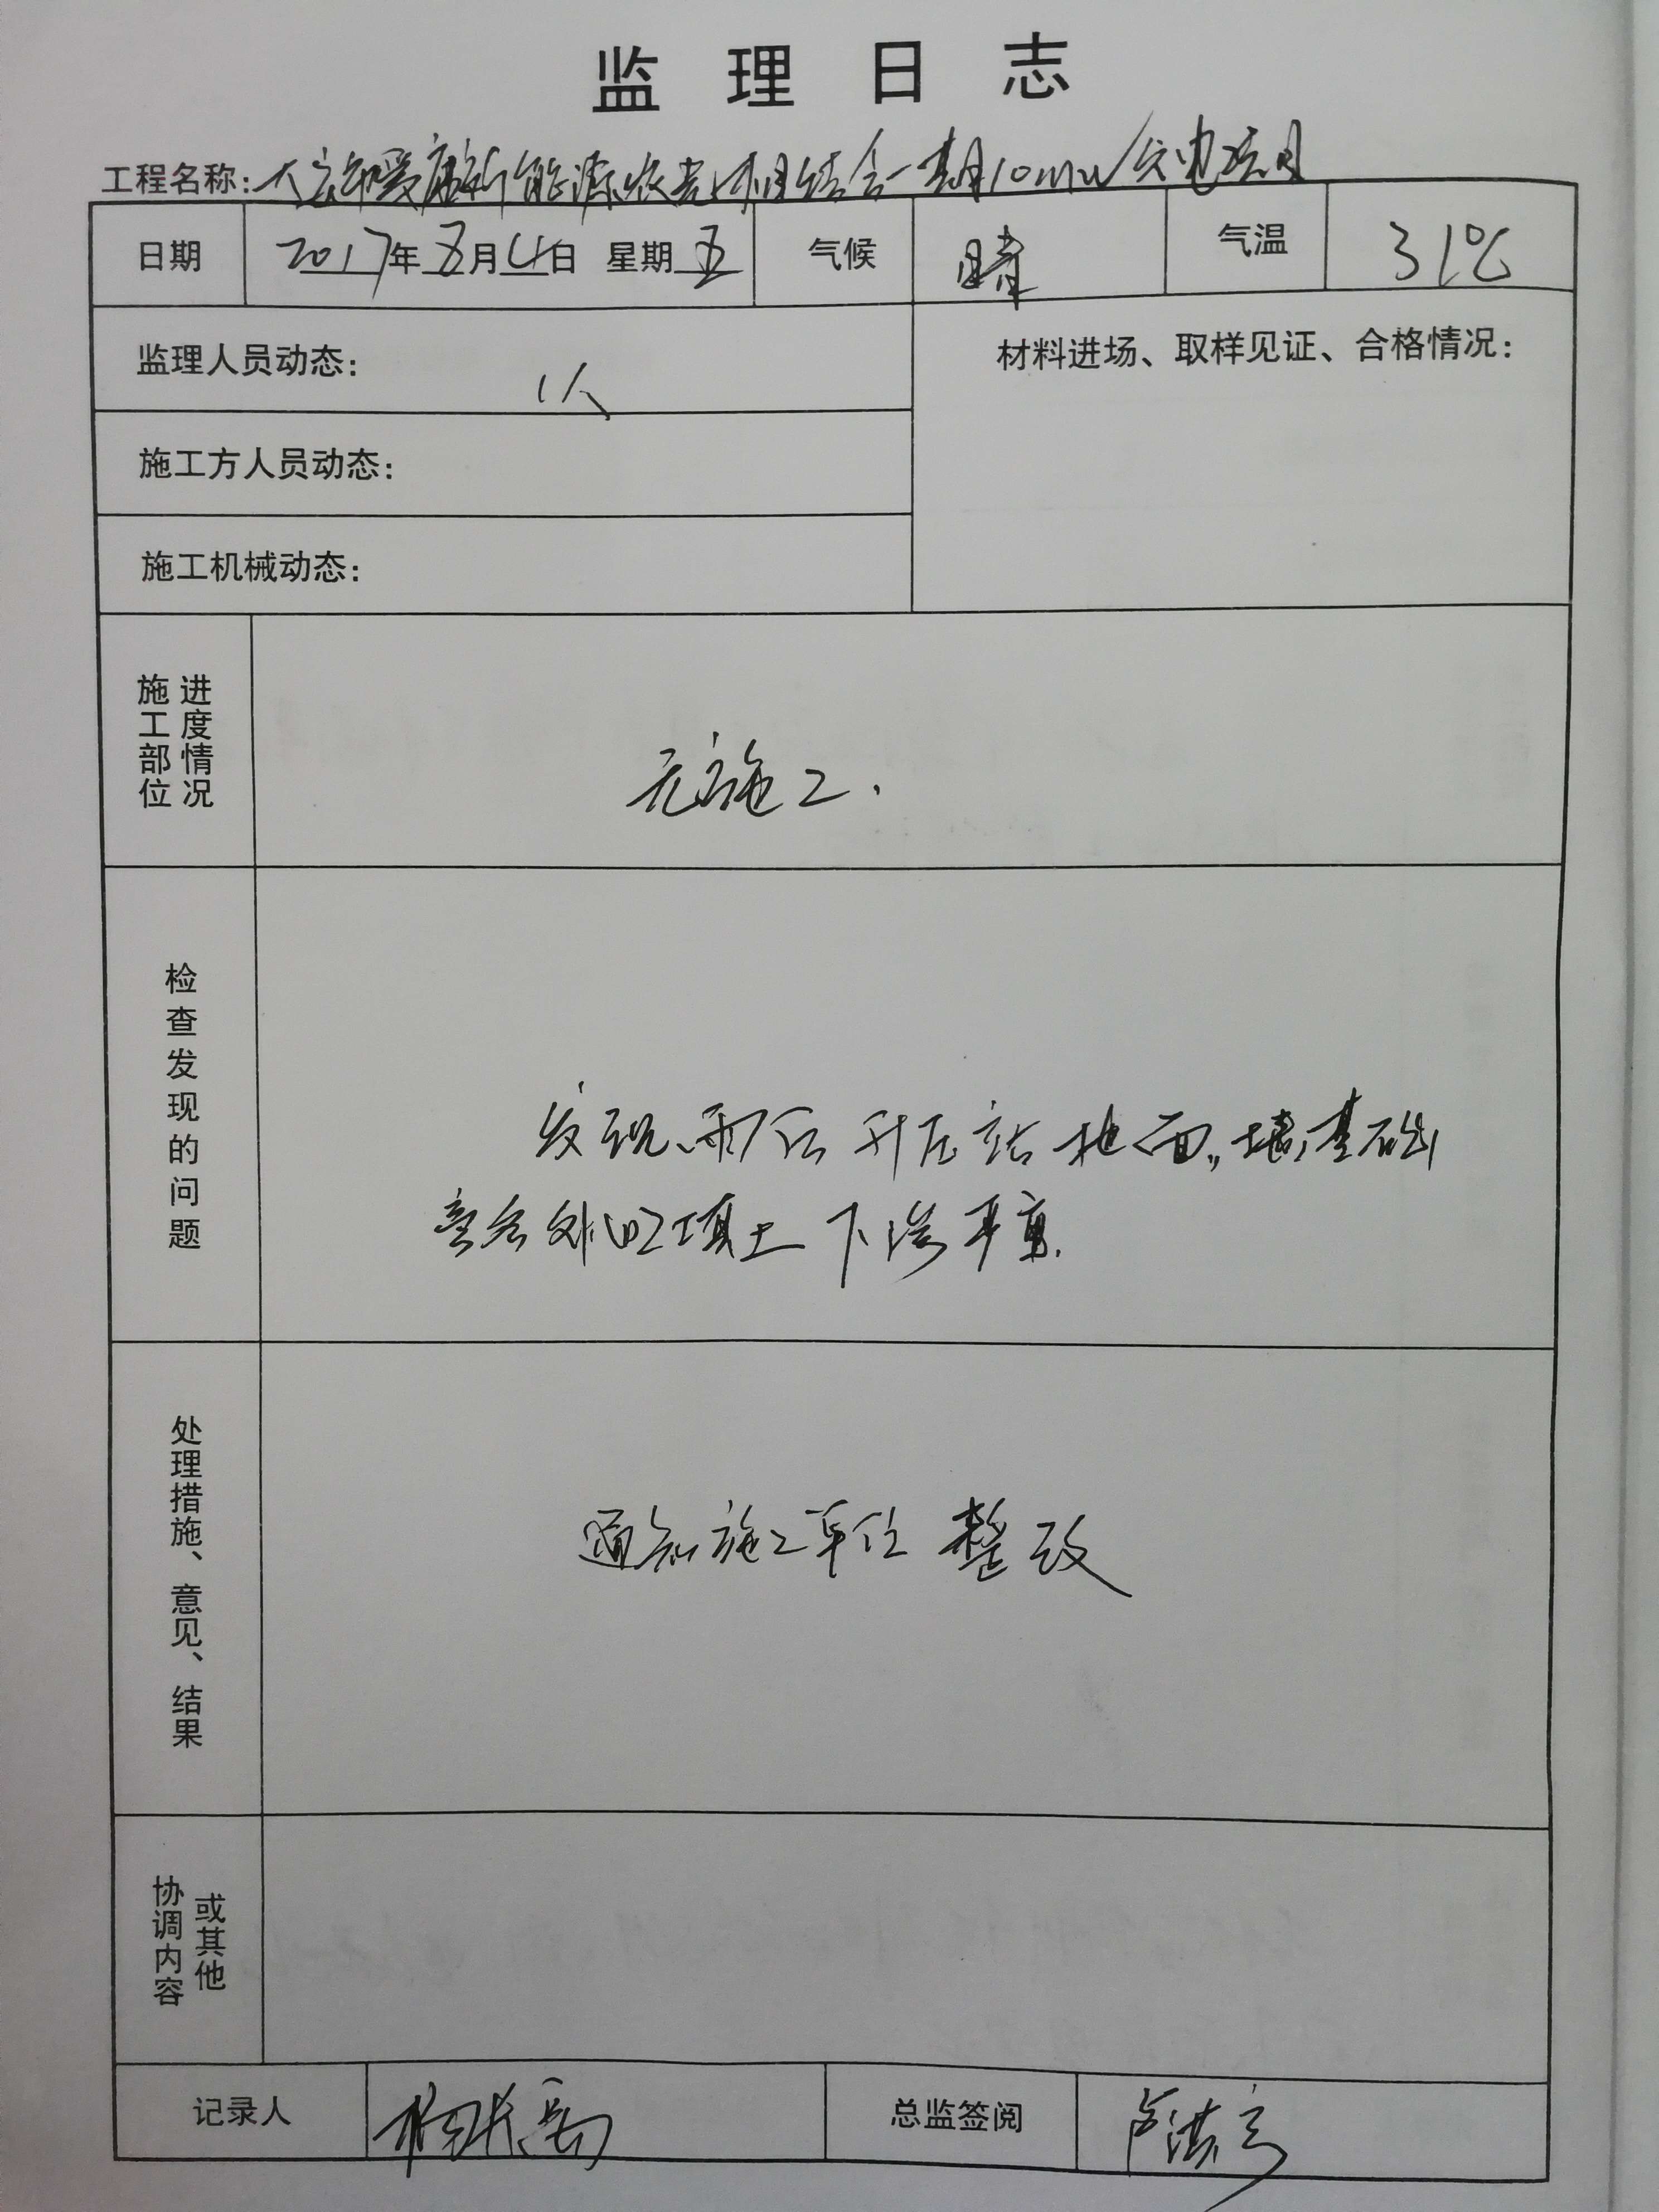 监理日志
工程名称:大安市爱康新能源农光相结合一期10MW发电项目
日期 2017年8月4日 星期五 气候 晴 气温 31℃
监理人员动态: 1人
材料进场、取样见证、合格情况:
施工方人员动态:
施工机械动态:
施工部位
进度情况
无施工.
检查发现的问题
发现雨后升压站地面,墙基础
室外回填土下沉严重.
处理措施、意见、结果
通知施工单位整改
协调内容
或其他
记录人
总监签阅